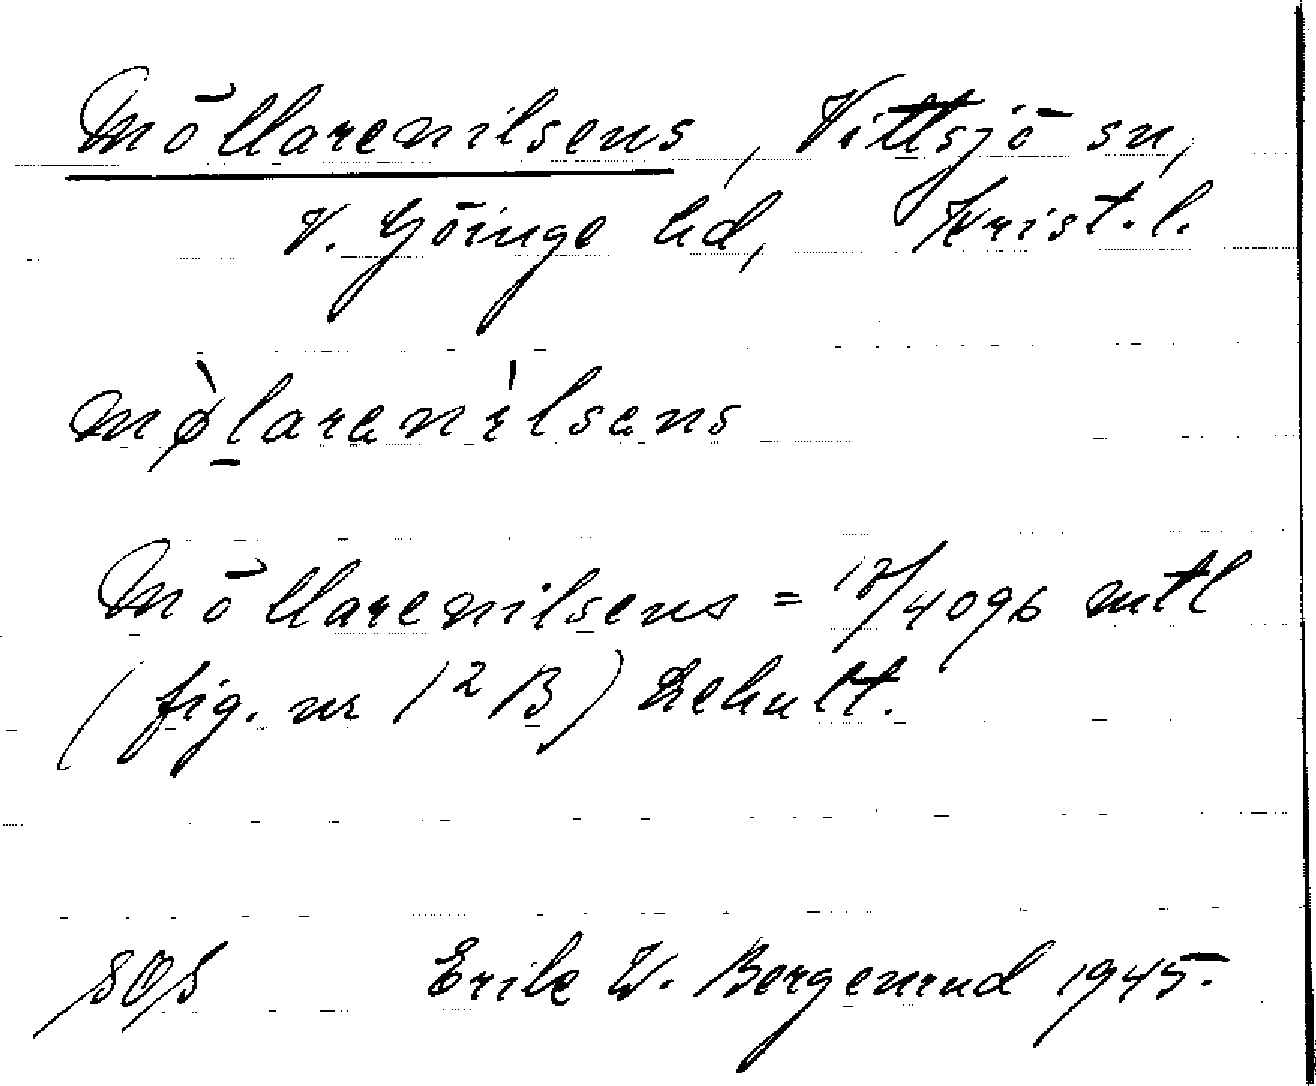 Möllarenilsens, Vittsjö sn,
V. Göinge hd, Krist. l.
mø̀larenìlsens
Möllarenilsens = 17/4096 mtl
(fig. nr 1²B) Lehult.
SOS Erik W. Bergenrud 1945.